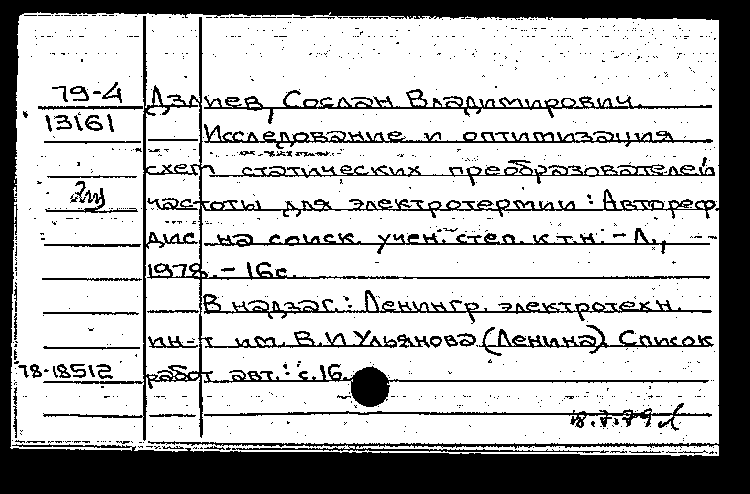 79-4 Дзлиев, Сослан Владимирович.
13161 Исследование и оптимизация
схем статических преобразователей
2ш частоты для электротермии : Автореф.
дис. на соиск. учен. степ. к.т.н. - Л.,
1978. - 16с.
В надзаг.: Ленингр. электротехн.
ин-т им. В.И Ульянова (Ленина). Список
78-18512 работ авт.: с.16.
18.7.79